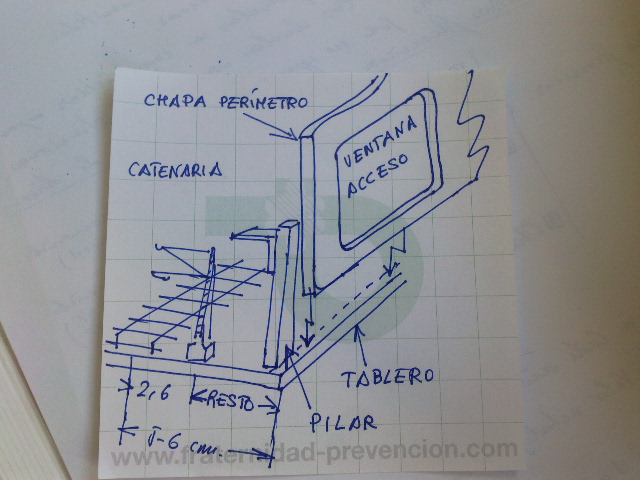 CHAPA PERÍMETRO
VENTANA
ACCESO
CATENARIA
TABLERO
2,6
RESTO
PILAR
5-6 cm.
www.fraternidad-prevencion.com